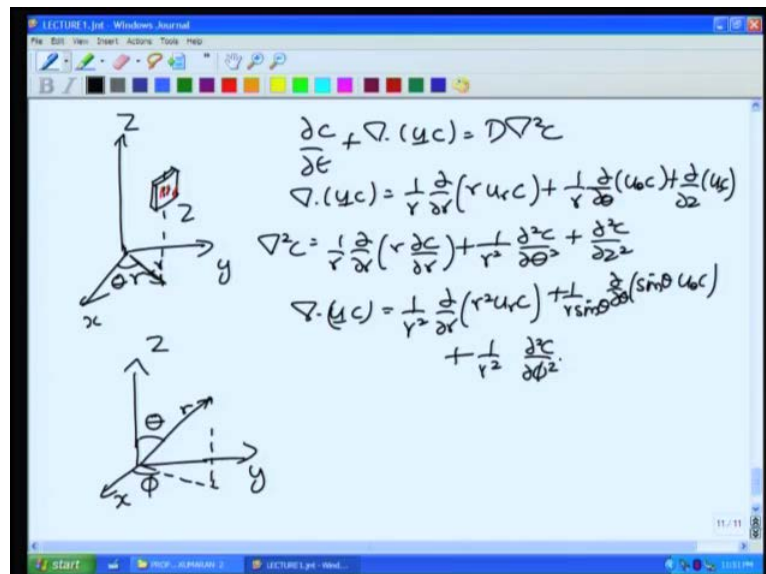 LECTURE1.jnt - Windows Journal
File Edit View Insert Actions Tools Help
B I
Z
∂c/∂t + ∇.(u̲c) = D∇²c
∇.(u̲c) = 1/r ∂/∂r (r u_r c) + 1/r ∂/∂θ (u_θ c) + ∂/∂z (u_z c)
Z
y
θ r
x
∇²c = 1/r ∂/∂r (r ∂c/∂r) + 1/r² ∂²c/∂θ² + ∂²c/∂z²
∇.(u̲c) = 1/r² ∂/∂r (r² u_r c) + 1/(r sinθ) ∂/∂θ (sinθ u_θ c)
+ 1/r² ∂²c/∂ϕ².
Z
θ r
y
x ϕ
11/11
start
LECTURE1.jnt - Wind...